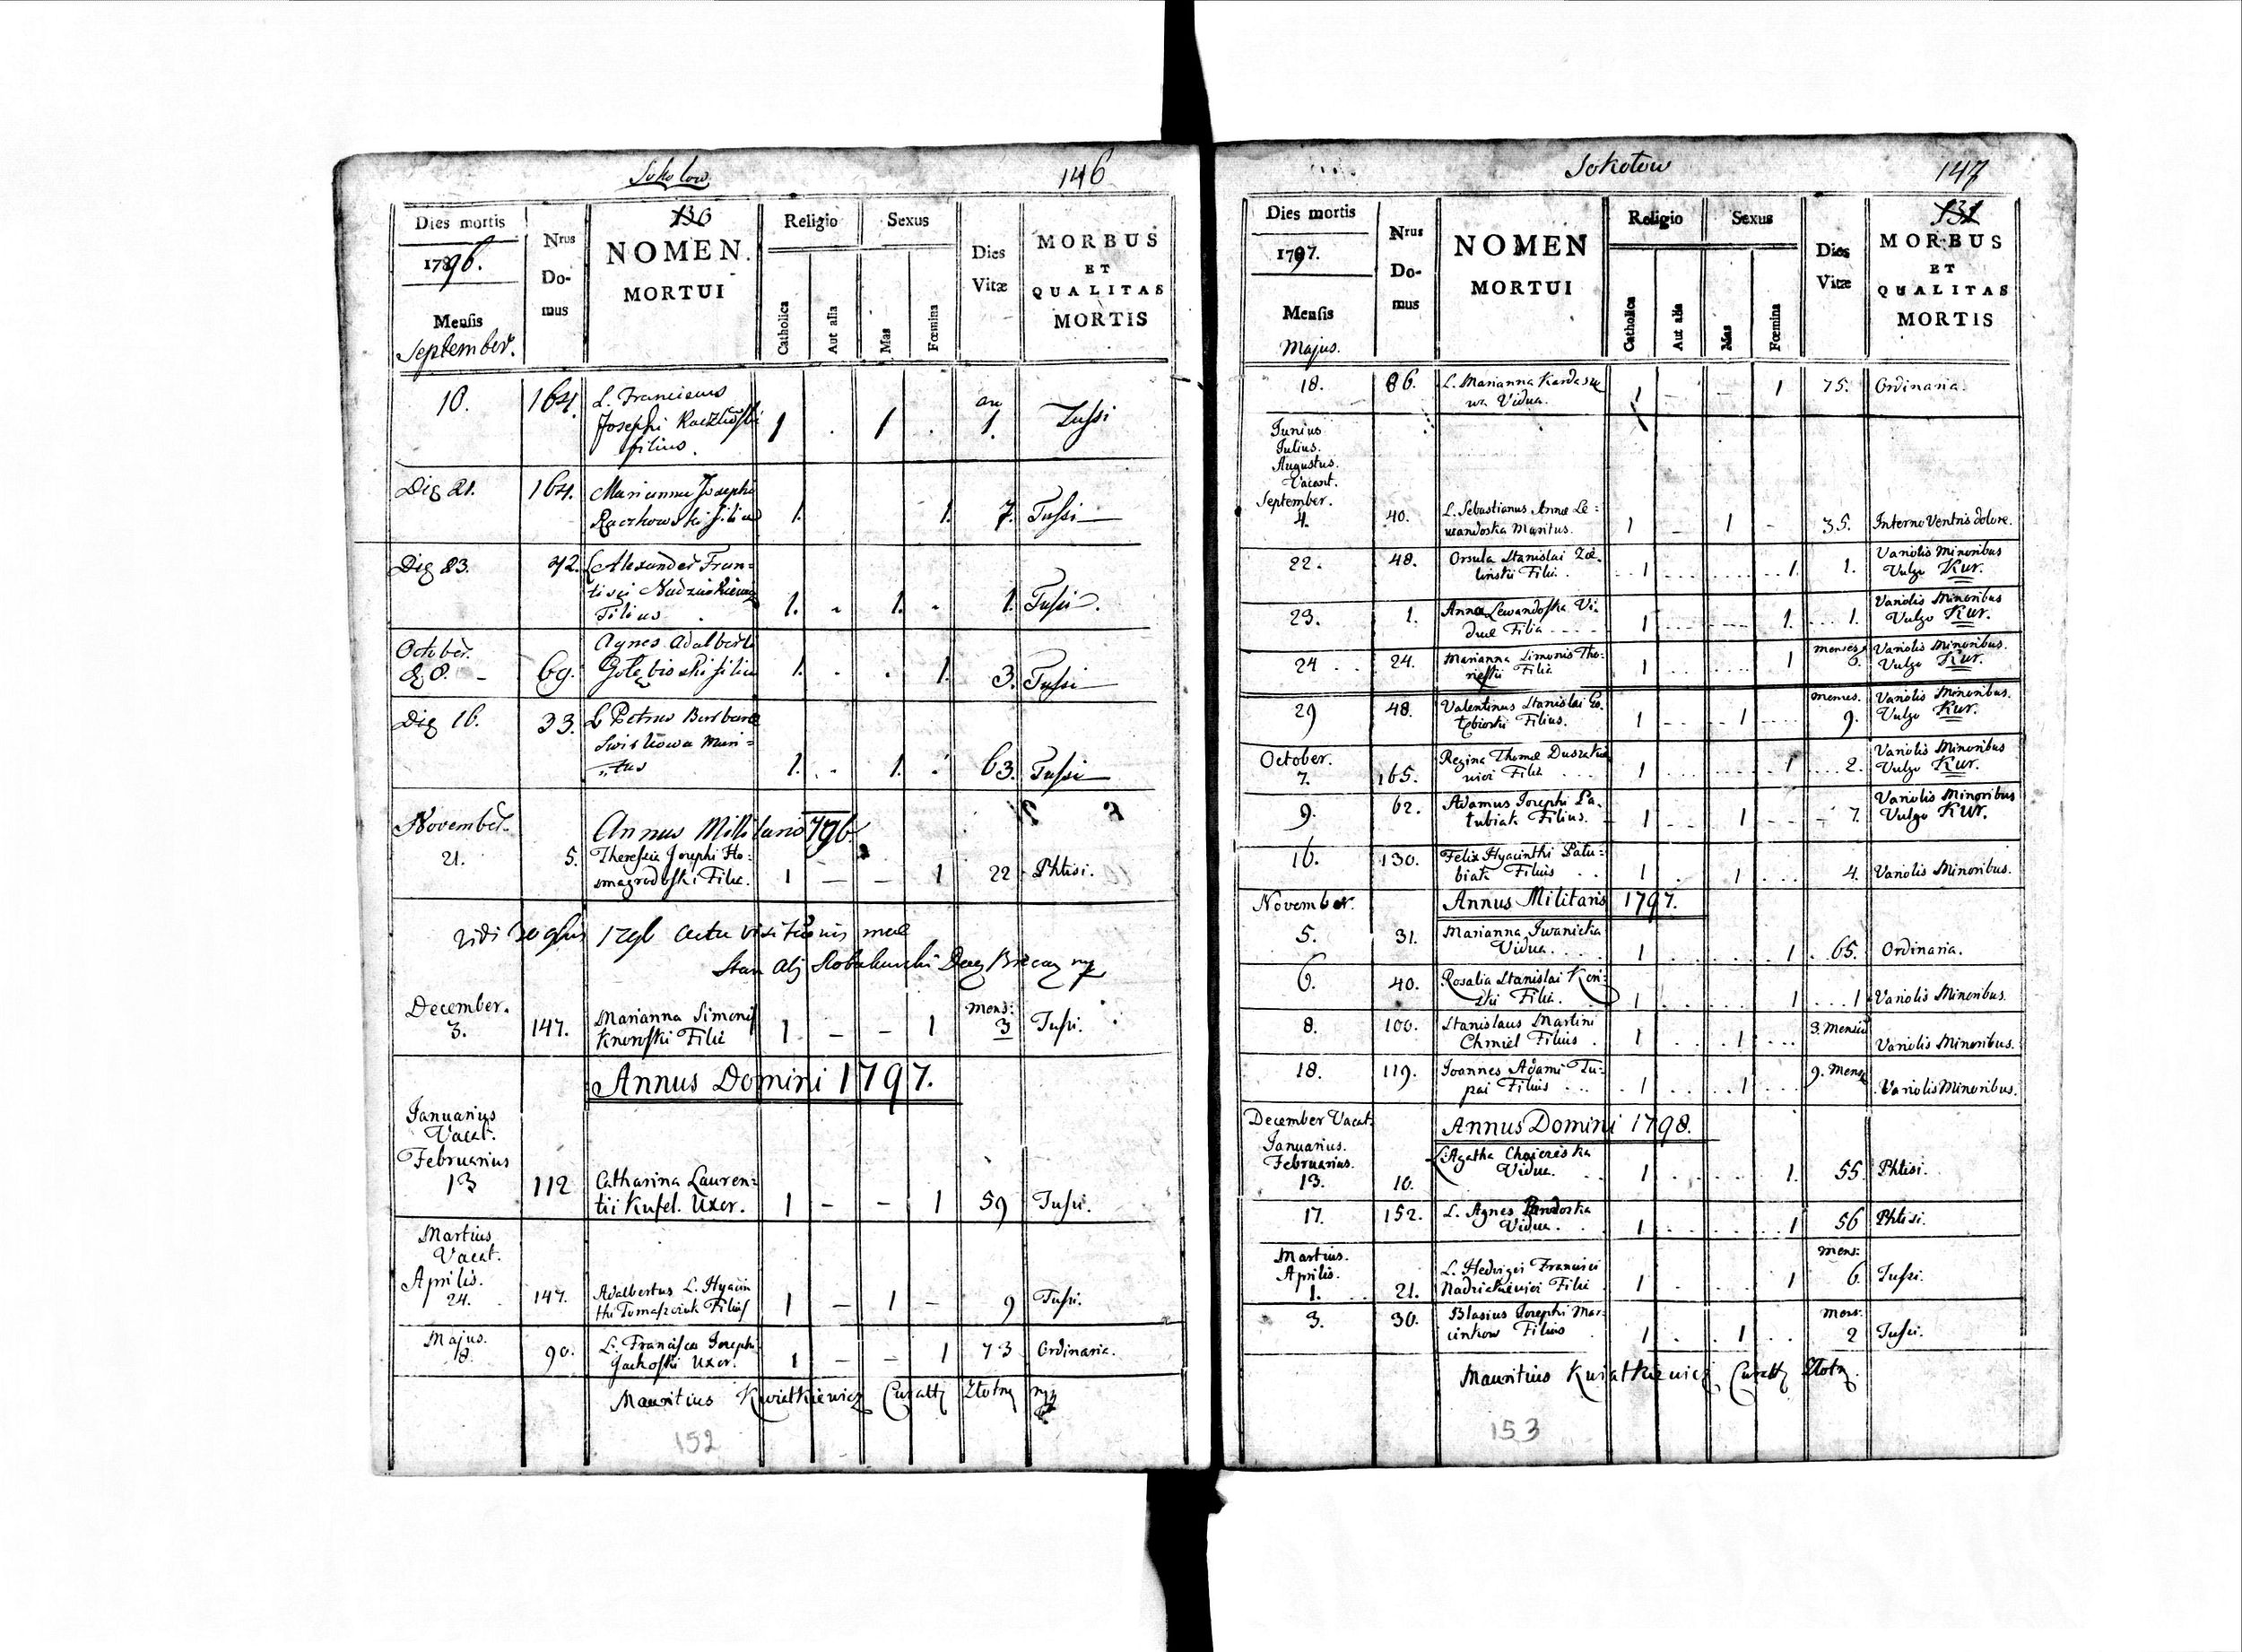 Sokolow
146
Dies mortis
1796.
Mensis
September.
Nrus
Do-
mus
130
NOMEN
MORTUI
Religio
Catholica
Aut alia
Sexus
Mas
Fœmina
Dies
Vitæ
MORBUS
ET
QUALITAS
MORTIS
10. 164. L. Franciscus
Josephi Raczkowski
filius. 1 . 1 . an 1. Tussi
Die 21. 164. Marianna Josephi
Raczkowski filia 1. 1. 7. Tussi
Die 23. 72. Alexander Fran=
Filius 1. - 1. - 1. Tussi.
October. Agnes Adalberti
8. 69. Gołębioski filia 1. . . 1. 3. Tussi
Die 16. 33. L Petrus Barbara
Swistkowa Mari=
tus 1. - 1. . 63. Tussi
November. Annus Militaris 796
21. 5. Theresia Josephi Ho=
Filia. 1 — — 1 22 Phtisi.
Vidi 1796 actu visitationis meæ
December.
3. 147. Marianna Simonis
Knoroski Filia 1 — — 1 Mens: 3 Tussi.
Annus Domini 1797.
Januarius
Vacat.
Februarius
13 112 Catharina Lauren=
tii Kufel. Uxor. 1 — — 1 59 Tussi.
Martius
Vacat.
Aprilis.
24. 147. Adalbertus L. Hyacin
thi Tomaszciuk Filius 1 — 1 — 9 Tussi.
Majus.
8. 90. L. Francisca Josephi
Gackoski Uxor. 1 — — 1 73 Ordinaria.
Mauritius Kwiatkiewicz Curatt Złotny
152
Sokołow
147
Dies mortis
1797.
Mensis
Majus.
Nrus
Do-
mus
131
NOMEN
MORTUI
Religio
Catholica
Aut alia
Sexus
Mas
Fœmina
Dies
Vitæ
MORBUS
ET
QUALITAS
MORTIS
18. 86. L. Marianna Kardasie
wa Vidua. 1 — — 1 75. Ordinaria.
Junius
Julius.
Augustus.
Vacant.
September.
4. 40. L. Sebastianus Annæ Le=
wandoska Maritus. 1 — 1 - 35. Interno Ventris dolore.
22. 48. Orsula Stanislai Zie=
linskii Filia. 1 1. 1. Variolis Minoribus
Vulgo Kur.
23. 1. Anna Lewandoska Vi=
duæ Filia 1 1. 1. Variolis Minoribus
Vulgo Kur.
24 24. Marianna Simonis Tho=
Filia 1 1 menses 6. Variolis Minoribus.
Vulgo Kur.
29 48. Valentinus Stanislai Go=
łębioski Filius. 1 1 menses. 9. Variolis Minoribus.
Vulgo Kur.
October.
7. 165. Regina Thomæ Duszkie
wici Filia 1 1 2. Variolis Minoribus
Vulgo Kur.
9. 62. Adamus Josephi Pa=
tubiak Filius. 1 1 7. Variolis Minoribus
Vulgo Kur.
16. 130. Felix Hyacinthi Patu=
biak Filius 1 1 4. Variolis Minoribus.
November. Annus Militaris 1797.
5. 31. Marianna Iwanicka
Vidua. 1 1 65. Ordinaria.
6. 40. Rosalia Stanislai
Filia. 1 1 1 Variolis Minoribus.
8. 100. Stanislaus Martini
Chmiel Filius 1 1 3. Mensiu
Variolis Minoribus.
18. 119. Joannes Adami Tu=
pai Filius 1 1 9. Mens
Variolis Minoribus.
December Vacat. Annus Domini 1798.
Januarius.
Februarius.
13. 10. L. Agatha Choieciska
Vidua. 1 1. 55. Phtisi.
17. 152. L. Agnes
Vidua. 1 1 56 Phtisi.
Martius.
Aprilis.
1. 21. L. Hedvigis Francisci
Filia 1 1 mens: 6. Tussi.
3. 30. Blasius Josephi Mar=
cinkow Filius 1 . 1 mens: 2 Tussi.
Mauritius Kwiatkiewicz Curatt Złotny.
153